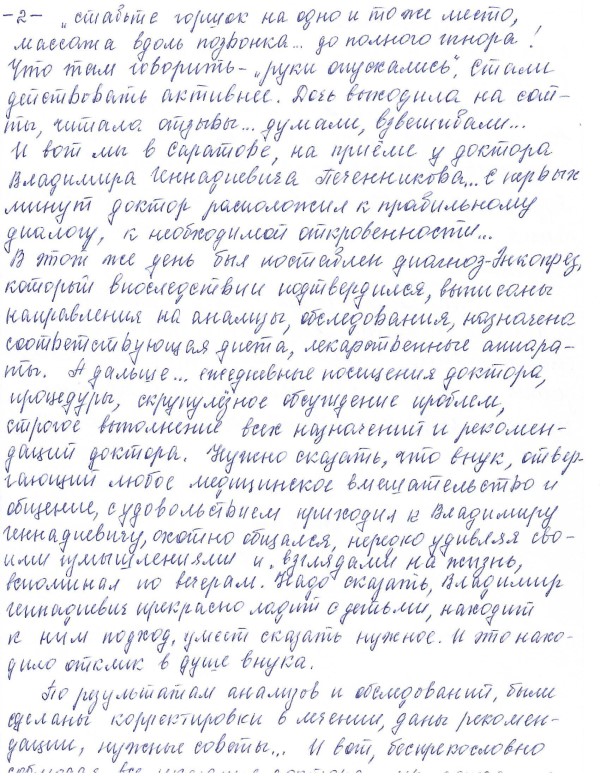 -2- „ставьте горшок на одно и то же место,
массажа вдоль позвонка... до полного игнора!
Что там говорить - „руки опускались", стали
действовать активнее. Дочь выходила на сай-
ты, читала отзывы... думали, взвешивали...
И вот мы в Саратове, на приёме у доктора
Владимира Геннадиевича Печенникова... С первых
минут доктор расположил к правильному
диалогу, к необходимой откровенности...
В этот же день был поставлен диагноз - Энкопрез,
который впоследствии подтвердился, выписаны
направления на анализы, обследования, назначена
соответствующая диета, лекарственные аппара-
ты. А дальше... ежедневные посещения доктора,
процедуры, скрупулёзное обсуждение проблем,
строгое выполнение всех назначений и рекомен-
даций доктора. Нужно сказать, что внук, отвер-
гающий любое медицинское вмешательство и
общение, с удовольствием приходил к Владимиру
Геннадиевичу, охотно общался, нередко удивляя сво-
ими измышлениями и взглядами на жизнь,
вспоминал по вечерам. Надо сказать, Владимир
Геннадиевич прекрасно ладит с детьми, находит
к ним подход, умеет сказать нужное. И это нахо-
дило отклик в душе внука.
По результатам анализов и обследований, были
сделаны корректировки в лечении, даны рекомен-
дации, нужные советы... И вот, беспрекословно